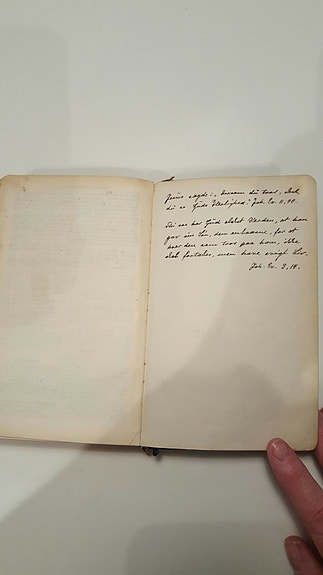 Jesus sagde: „Dersom du troer, skal
du se Guds Herlighed." Joh. Ev. 11,40.
Thi saa har Gud elsket Verden, at han
gav sin Søn, den enbaarne, for at
hver den som tror paa ham, ikke
skal fortabes, men have evigt Liv.
Joh. Ev. 3,16.